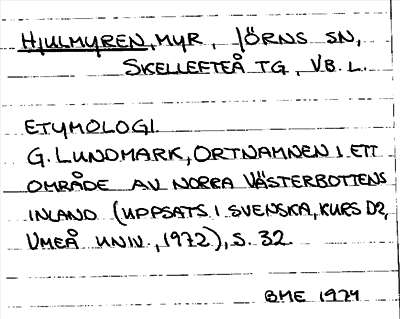 HJULMYREN, MYR, JÖRNS SN,
SKELLEFTEÅ TG, VB. L.
ETYMOLOGI.
G. LUNDMARK, ORTNAMNEN I ETT
OMRÅDE AV NORRA VÄSTERBOTTENS
INLAND (UPPSATS I SVENSKA, KURS D2,
UMEÅ UNIV., 1972), S. 32.
BME 1974